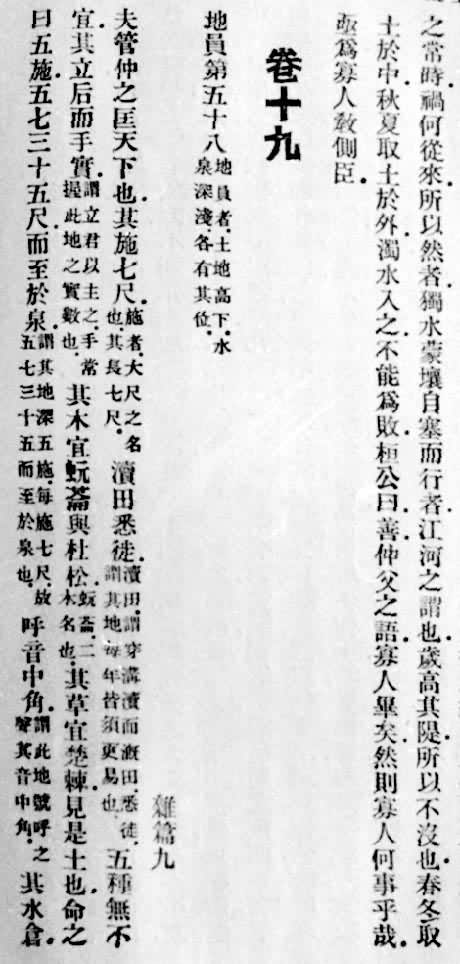 之常時禍何從來所以然者獨水蒙壤自塞而行者江河之謂也歲高其隄所以不沒也春冬取
土於中秋夏取土於外濁水入之不能為敗桓公曰善仲父之語寡人畢矣然則寡人何事乎哉
亟為寡人教側臣
卷十九
地員第五十八地員者土地高下水
泉深淺各有其位
雜篇九
夫管仲之匡天下也其施七尺施者大尺之名
也其長七尺瀆田悉徙瀆田謂穿溝瀆而溉田悉徒
謂其地每年皆須更易也五種無不
宜其立后而手實謂立君以主之手常
握此地之實數也其木宜蚖菕與杜松蚖菕二
木名也其草宜楚棘見是土也命之
曰五施五七三十五尺而至於泉謂其地深五施每施七尺故
五七三十五而至於泉也呼音中角謂此地號呼之
聲其音中角其水倉